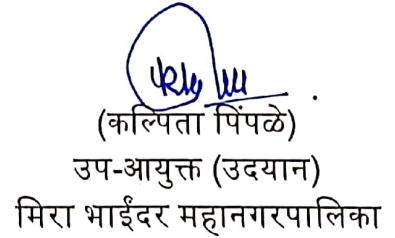 (कल्पिता पिंपळे)
उप-आयुक्त (उदयान)
मिरा भाईंदर महानगरपालिका